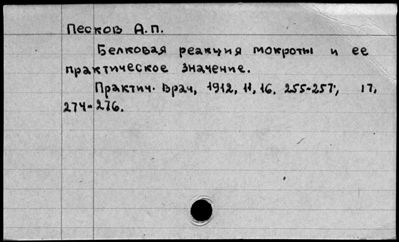 Песков А.П.
Белковая реакция мокроты и ее
практическое значение.
Практич. врач, 1912, 11, 16, 255-257; 17,
274-276.